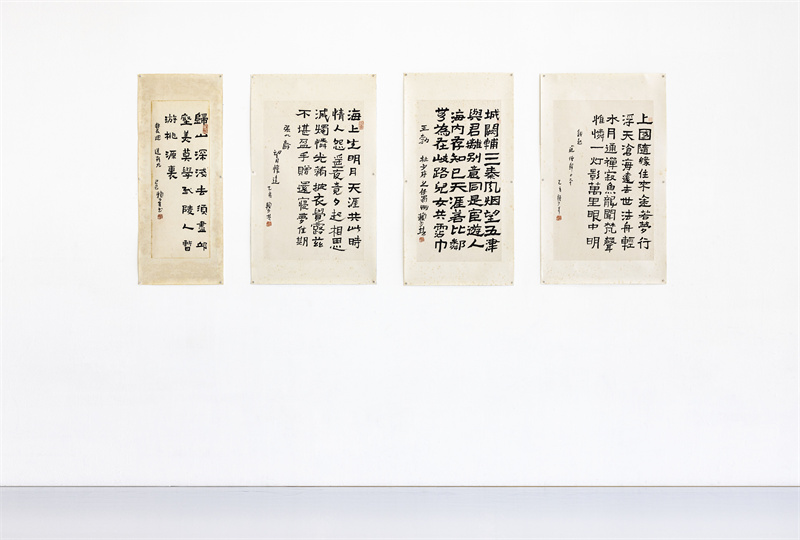 上國隨緣住来途若夢行
浮天滄海遠去世法舟輕
水月通禪寂魚龍聞梵聲
惟憐一灯影萬里眼中明
城闕輔三秦風烟望五津
與君離別意同是宦遊人
海内存知己天涯若比鄰
無為在岐路兒女共霑巾
王勃 杜少府之任蜀州
海上生明月天涯共此時
情人怨遥夜竟夕起相思
滅燭憐光滿披衣覺露滋
不堪盈手贈還寢夢佳期
張九齡
望月懷遠
歸山深淺去須盡邱
壑美莫學武陵人暫
游桃源裏
裴迪 送崔九